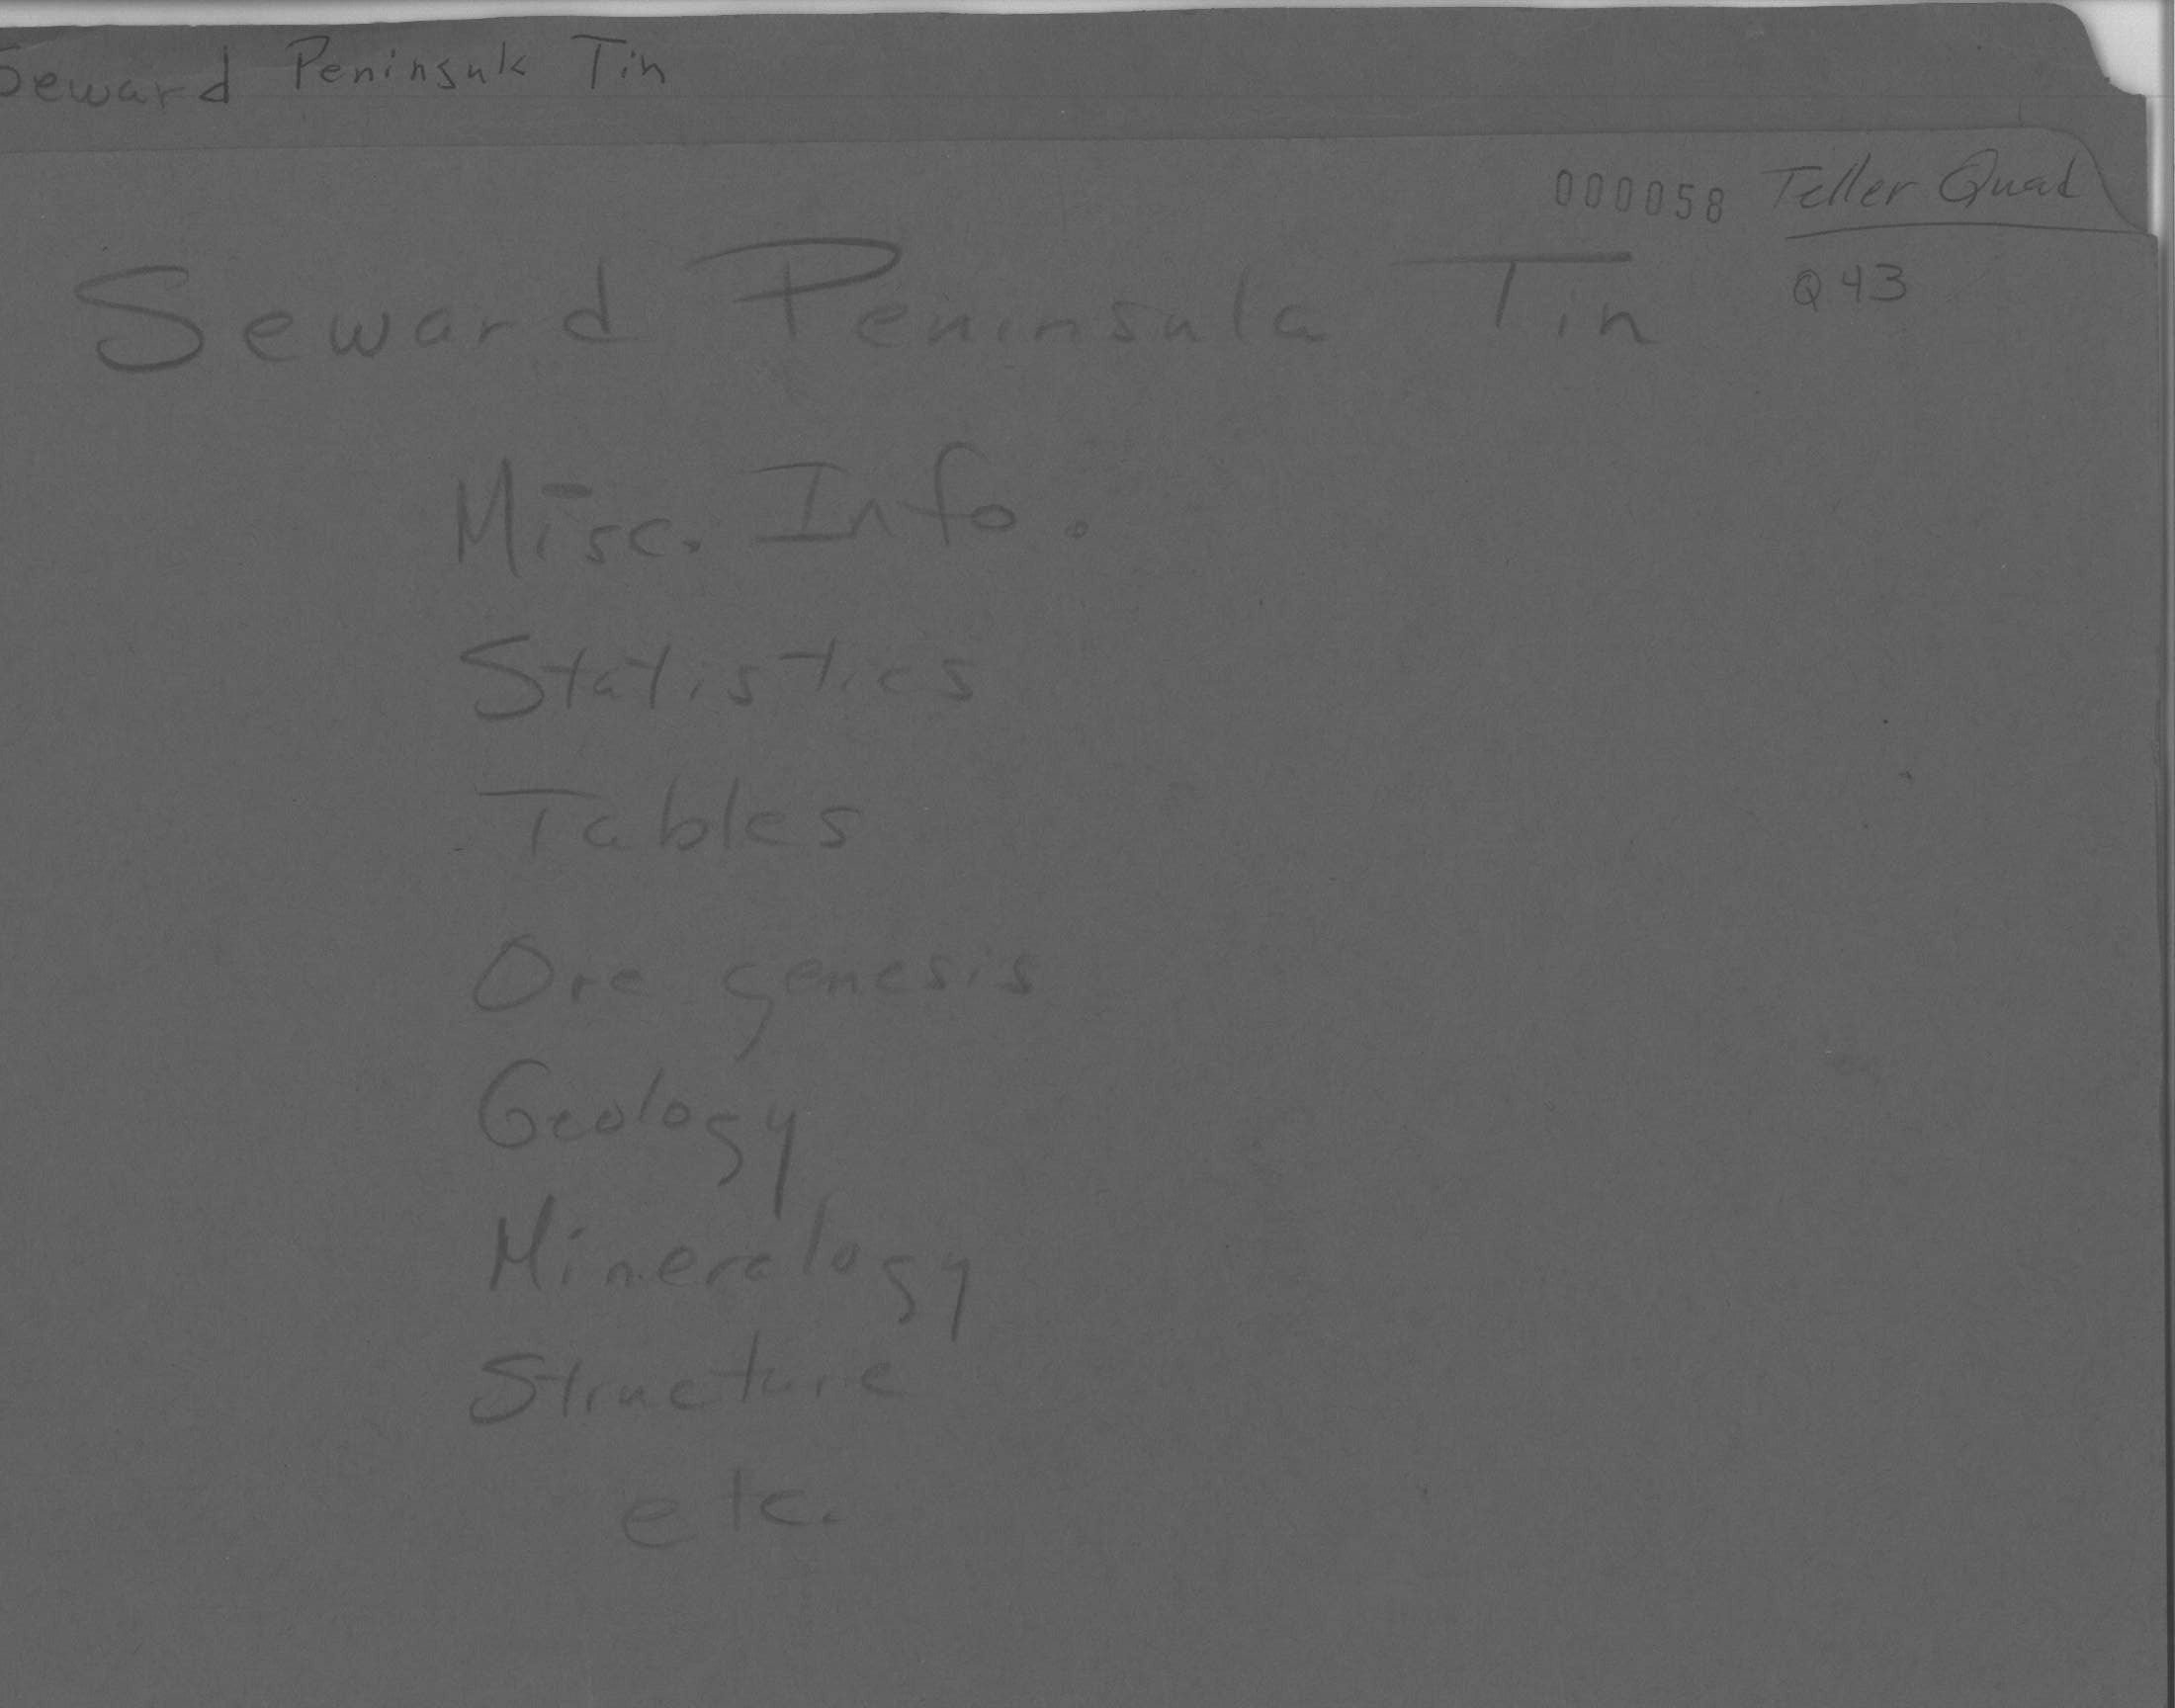 Seward Peninsula Tin
000058 Teller Quad
Q43
Seward Peninsula Tin
Misc. Info.
Statistics
Tables
Ore genesis
Geology
Mineralogy
Structure
etc.